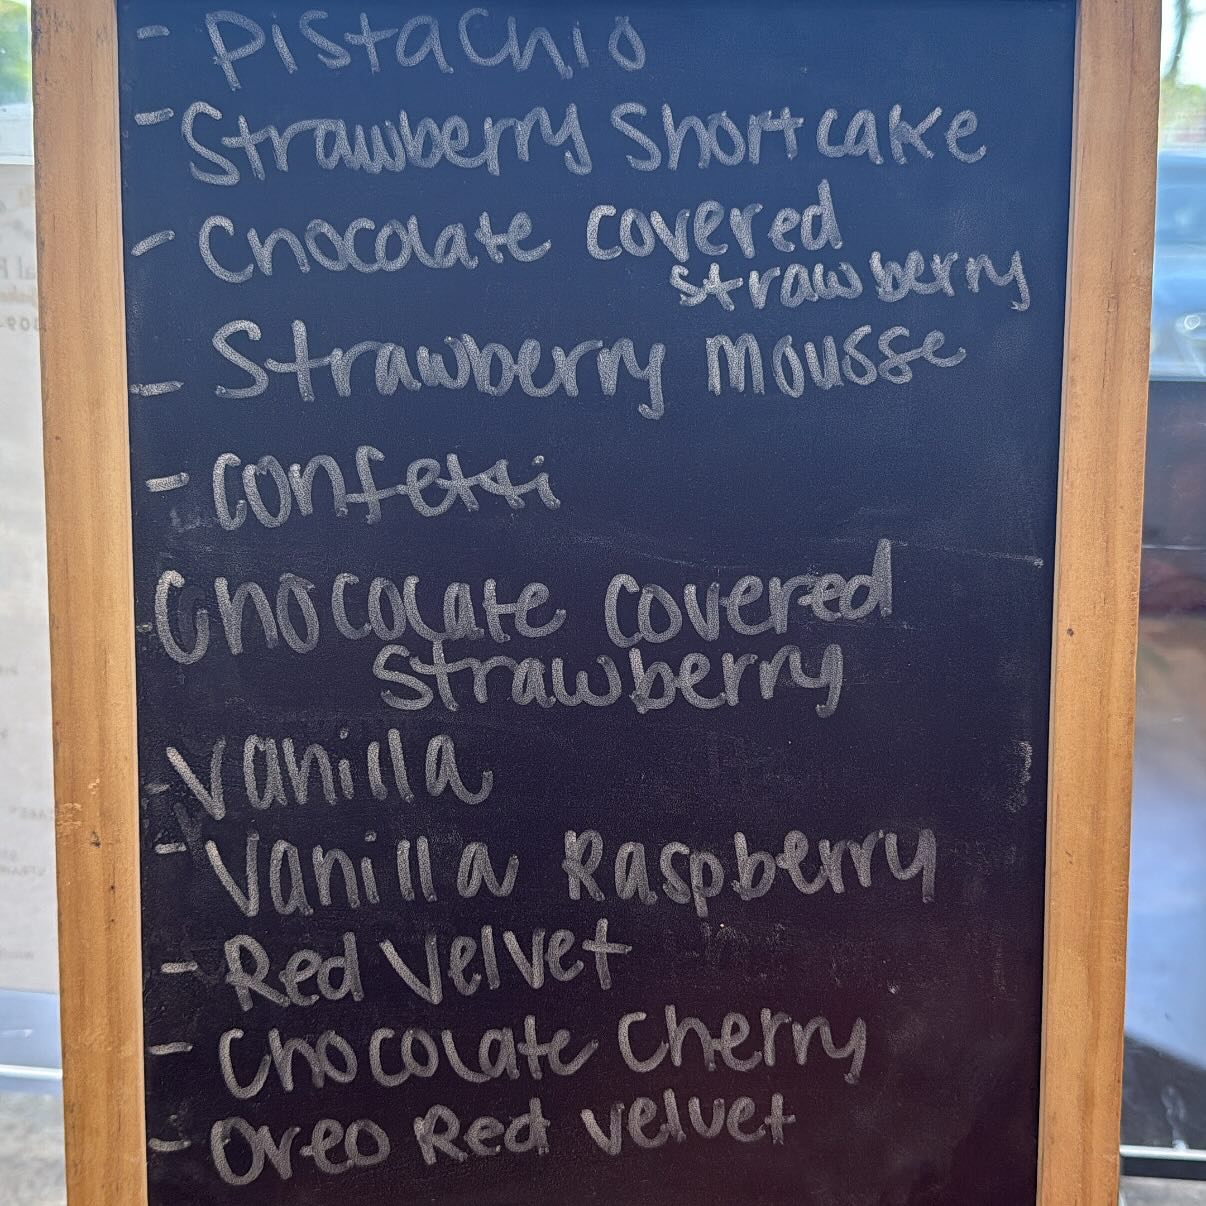 - Pistachio
- Strawberry Shortcake
- Chocolate covered
strawberry
- Strawberry mousse
- Confetti
- Chocolate Covered
Strawberry
- Vanilla
- Vanilla Raspberry
- Red Velvet
- Chocolate Cherry
- Oreo Red velvet